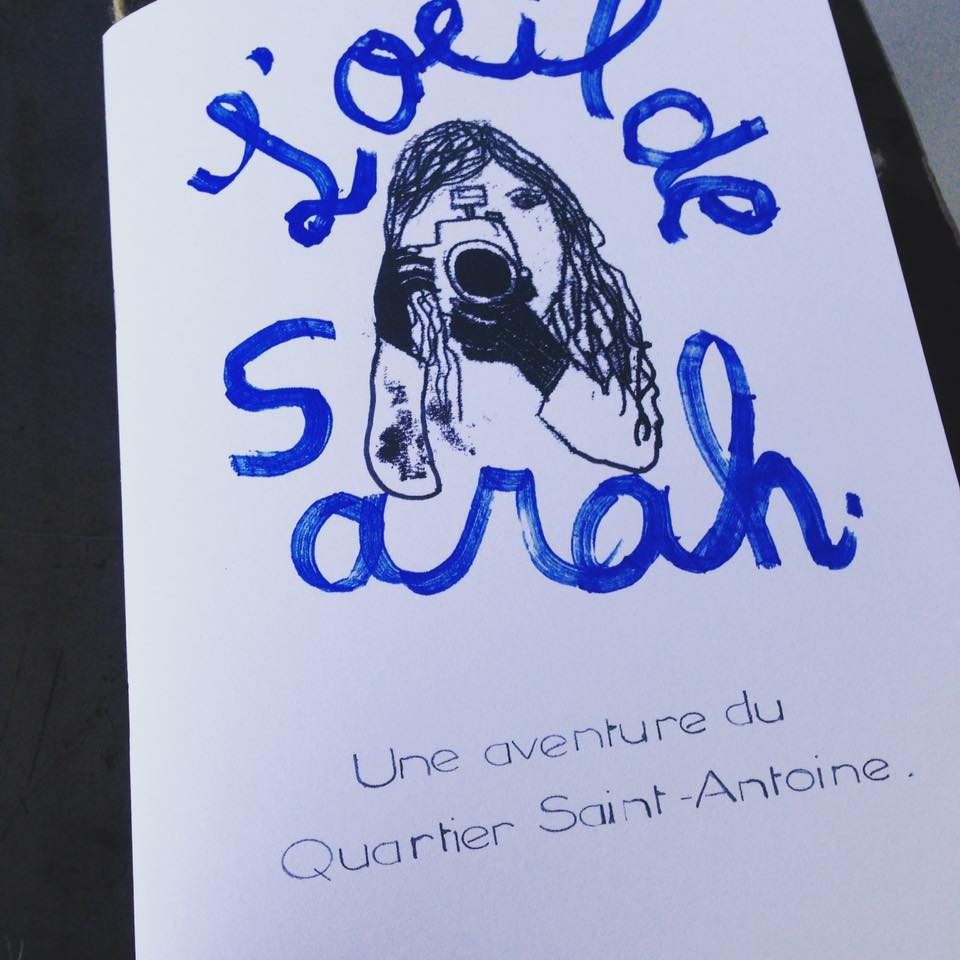 L'oeil de
Sarah.
Une aventure du
Quartier Saint-Antoine.